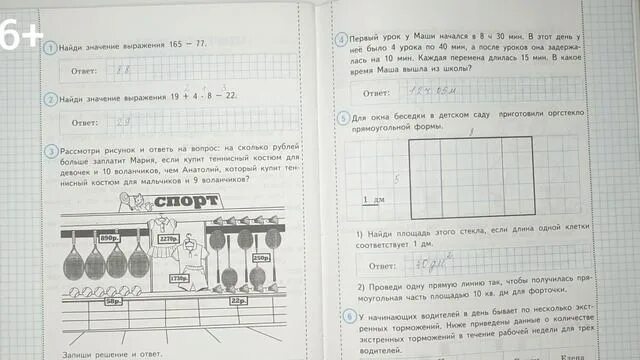 6+
1 Найди значение выражения 165 − 77.
Ответ: 88
2 Найди значение выражения 19 + 4 · 8 − 22.
Ответ: 29
3 Рассмотри рисунок и ответь на вопрос: на сколько рублей
больше заплатит Мария, если купит теннисный костюм для
девочек и 10 воланчиков, чем Анатолий, который купит тен-
нисный костюм для мальчиков и 9 воланчиков?
СПОРТ
890р.
2270р.
1730р.
250р.
58р.
22р.
Запиши решение и ответ.
4 Первый урок у Маши начался в 8 ч 30 мин. В этот день у
неё было 4 урока по 40 мин, а после уроков она задержа-
лась на 10 мин. Каждая перемена длилась 15 мин. В какое
время Маша вышла из школы?
Ответ: 12ч 05м
5 Для окна беседки в детском саду приготовили оргстекло
прямоугольной формы.
8
5
1 дм
1) Найди площадь этого стекла, если длина одной клетки
соответствует 1 дм.
Ответ: 40 дм²
2) Проведи одну прямую линию так, чтобы получилась пря-
моугольная часть площадью 10 кв. дм для форточки.
6 У начинающих водителей в день бывает по несколько экст-
ренных торможений. Ниже приведены данные о количестве
экстренных торможений в течение рабочей недели для трёх
водителей.
Елена